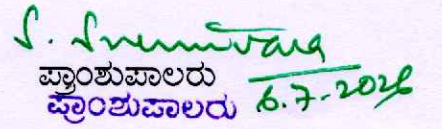 S. Srenivara
ಪ್ರಾಂಶುಪಾಲರು
ಪ್ರಾಂಶುಪಾಲರು 6.7.2026